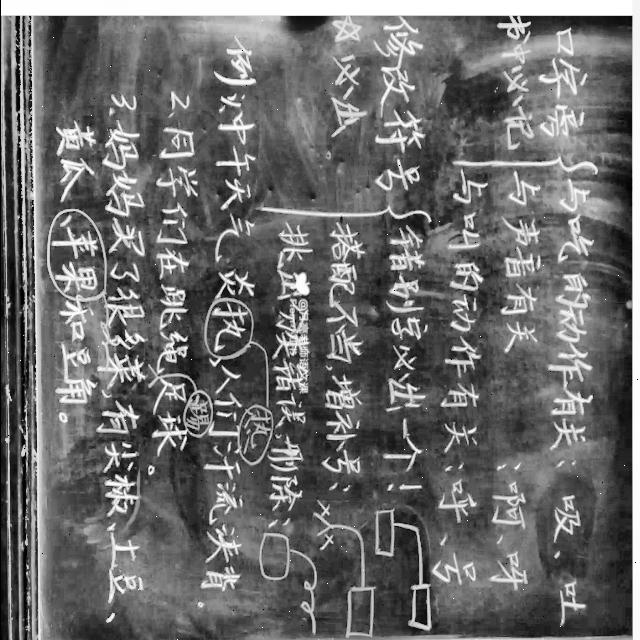 口字旁{与吃的动作有关:吸、吐
与声音有关:啊、呀
与叫的动作有关:呼、号
修改符号{错别字 出一个!
☆必
搭配不当,增补号:
错误,删除:
例1.中午天气炎执,人们汗流浃背。
热
2.同学们在跳绳足球。
踢
3.妈妈买了很多菜,有尖椒、土豆、
黄瓜、苹果和豆角。